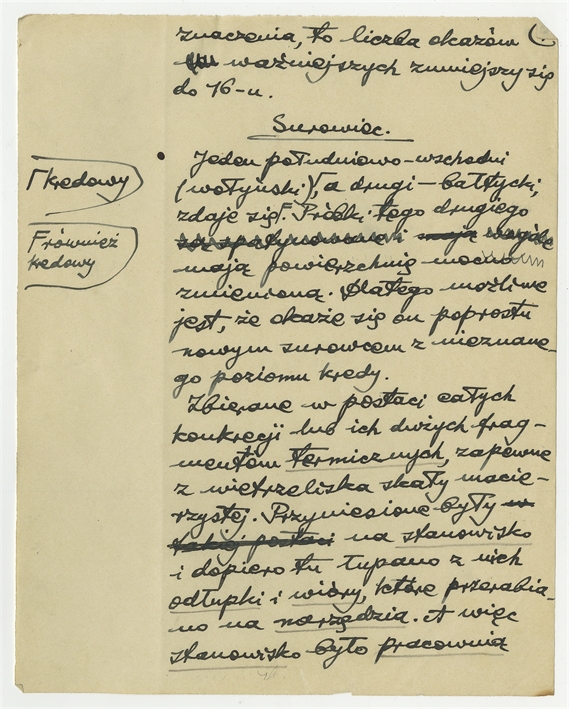 znaczenia, to liczba okazów
ważniejszych zmniejszy się
do 16-u.
Surowiec.
Jeden południowo-wschodni
Γ kredowy
(wołyński)Γ, a drugi – bałtycki,
zdaje sięF. Próbki tego drugiego
F również
kredowy
są spatynowane i mają
mają powierzchnię mocno
zmienioną. Dlatego możliwe
jest, że okaże się on poprostu
nowym surowcem z nieznane-
go poziomu kredy.
Zbierane w postaci całych
konkrecji lub ich dużych frag-
mentów termicznych, zapewne
z wietrzeliska skały macie-
rzystej. Przyniesione były w
takiej postaci na stanowisko
i dopiero tu łupano z nich
odłupki i wióry, które przerabia-
no na narzędzia. A więc
stanowisko było pracownią